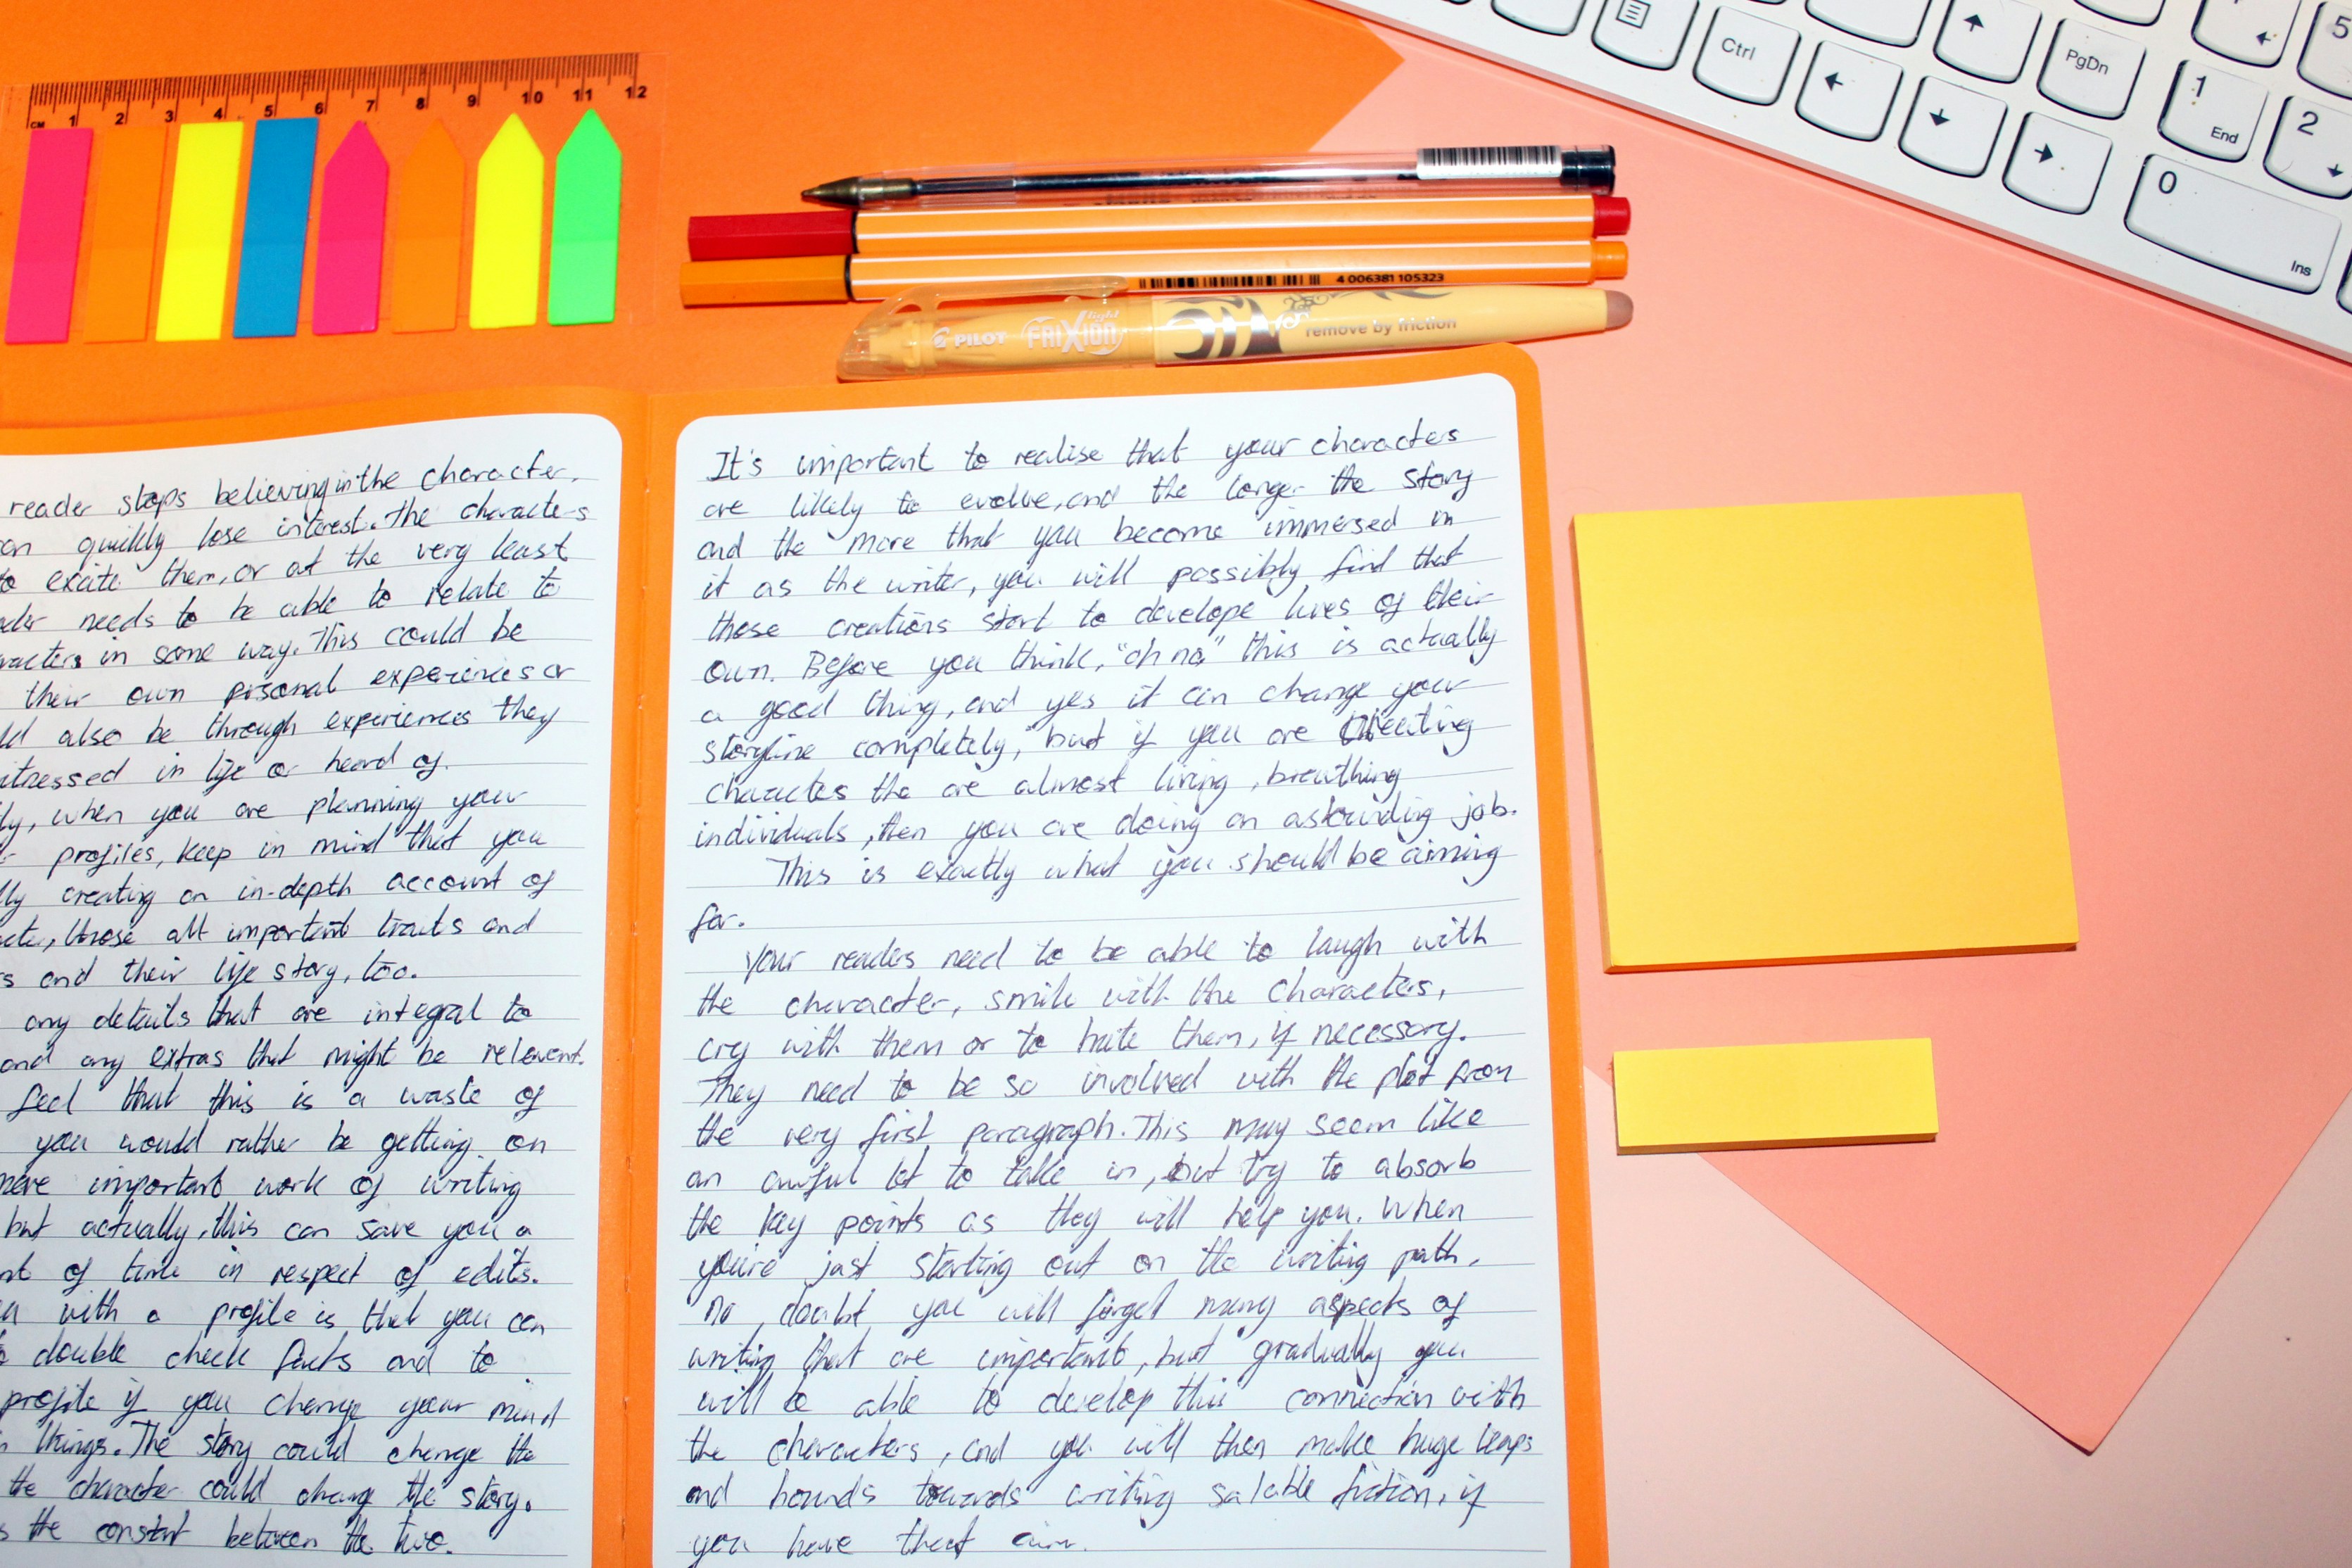 CM 1 2 3 4 5 6 7 8 9 10 11 12
Ctrl
PgDn
1
End
2
5
0
Ins
4 006381 105323
PILOT FRIXION light
remove by friction
reader stops believing in the character,
quickly lose interest. The characters
to excite them, or at the very least
needs to be able to relate to
in some way. This could be
their own prsonal experiences or
also be through experiences they
in life or heard of.
, when you are planning your
profiles, keep in mind that you
creating an in-depth account of
, those all important traits and
and their life story, too.
any details that are integral to
and any extras that might be relevent.
feel that this is a waste of
you would rather be getting on
important work of writing
but actually, this can save you a
of time in respect of edits.
with a profile is that you can
double check facts and to
profile if you change your mind
things. The story could change the
the character could change the story.
the constant between the two.
It's important to realise that your characters
are likely to evolve, and the longer the story
and the more that you become immersed in
it as the writer, you will possibly find that
these creations start to develope lives of their
own. Before you think, "oh no" this is actually
a good thing, and yes it can change your
storyline completely, but if you are creating
charactes the are almost living, breathing
individuals, then you are doing an astounding job.
This is exactly what you should be aiming
for.
Your readers need to be able to laugh with
the character, smile with the characters,
cry with them or to hate them, if necessary.
They need to be so involved with the plot from
the very first paragraph. This may seem like
an awful lot to take in, but try to absorb
the key points as they will help you. When
you're just starting out on the writing path,
no doubt you will forget many aspects of
writing that are important, but gradually you
will be able to develop this connection with
the characters, and you will then make huge leaps
and bounds towards writing salable fiction, if
you have that aim.